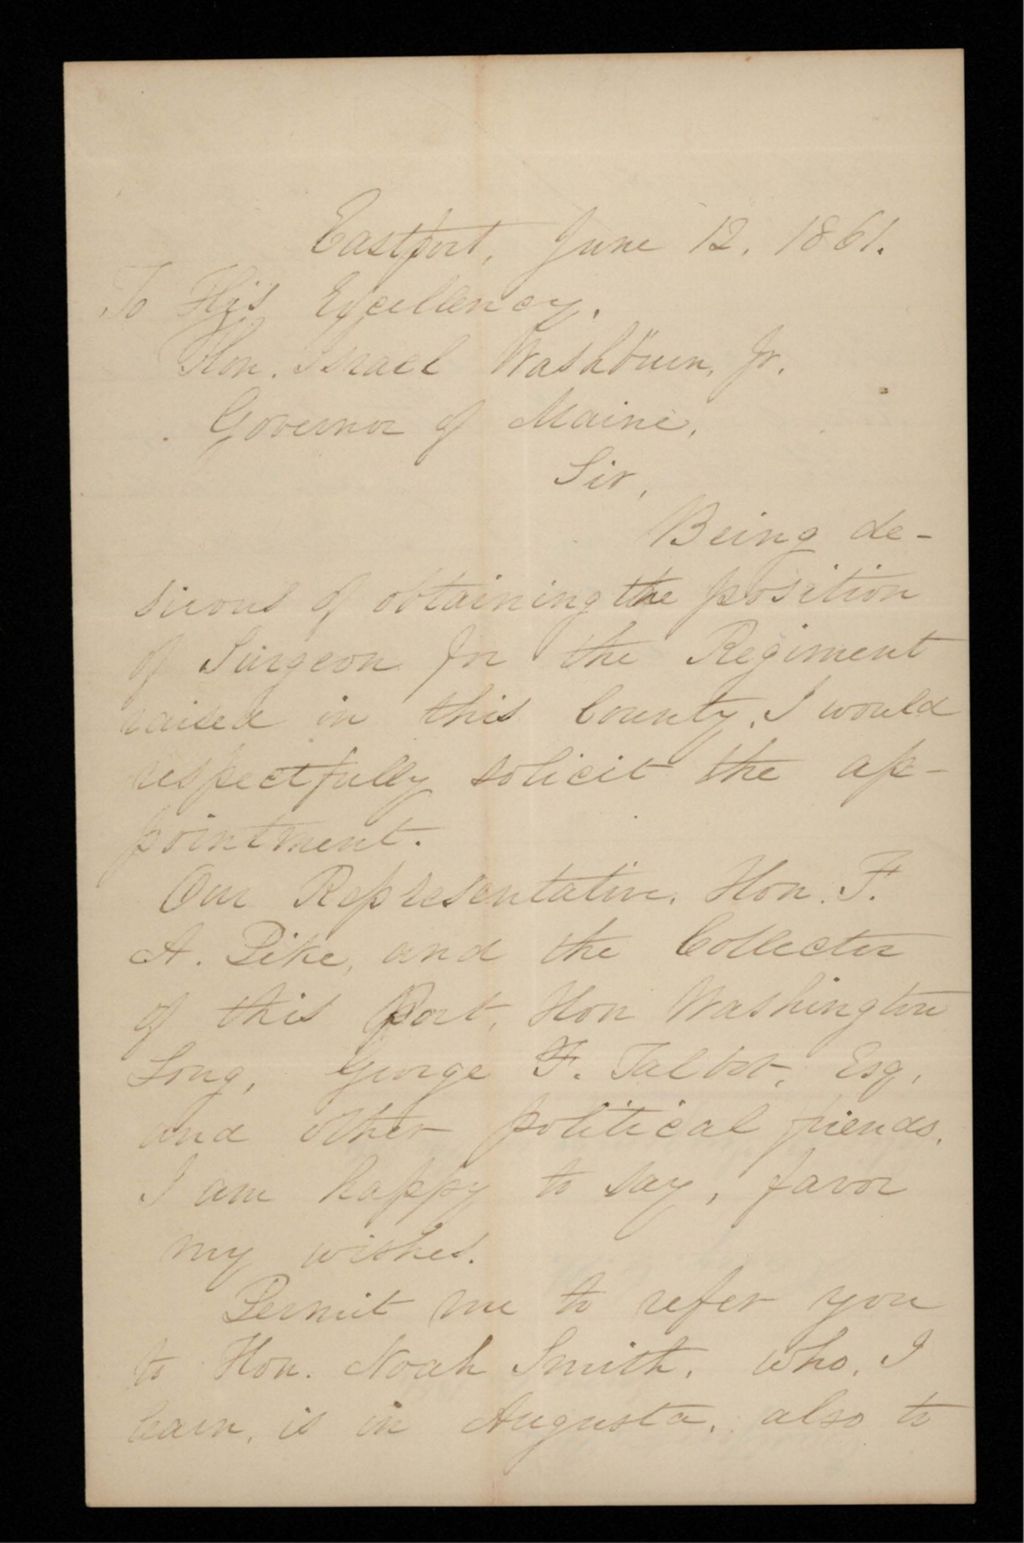 Eastport, June 12. 1861.
To His Excellency.
Hon. Israel Washburn, Jr.
Governor of Maine,
Sir,
Being de-
sirous of obtaining the position
of Surgeon for the Regiment
raised in this County, I would
respectfully solicit the ap-
pointment.
Our Representative, Hon. F.
A. Pike, and the Collector
of this Port, Hon Washington
Long, George F. Talbot, Esq,
and other political friends,
I am happy to say, favor
my wishes.
Permit me to refer you
to Hon. Noah Smith, who, I
learn, is in Augusta, also to